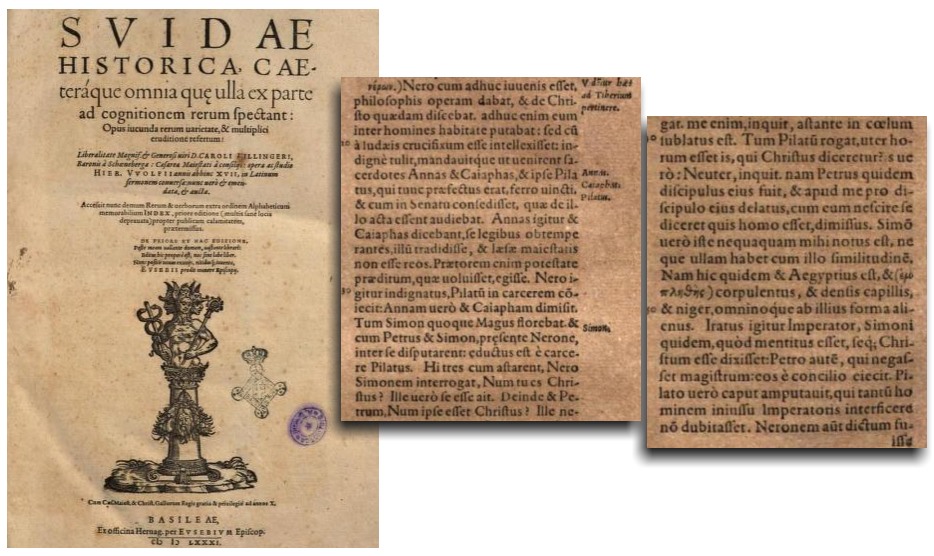 SVIDAE
HISTORICA, CAE-
teráque omnia quę ulla ex parte
ad cognitionem rerum spectant:
Opus iucunda rerum uarietate, & multiplici
eruditione refertum:
Liberalitate Magnifi. & Generosi uiri D. CAROLI
HIER. VVOLFII annis abhinc XVII, in Latinum
sermonem conuersa: nunc uerò & emen-
data, & aucta.
Accessit nunc demum Rerum & uerborum extra ordinem Alphabeticum
memorabilium INDEX, priore editione
propter publicam calamitatem,
prætermissus.
DE PRIORE ET HAC EDITIONE.
Cum Cæs. Maiest. & Christ. Galliarum Regis gratia & priuilegio ad annos X.
BASILEAE,
Ex officina Heruag. per EVSEBIVM Episcop.
LXXXI.
Nero cum adhuc iuuenis esset,
philosophis operam dabat, & de Chri-
sto quædam discebat. adhuc enim eum
inter homines habitate putabat: sed cũ
à Iudæis crucifixum esse intellexisset: in-
dignè tulit, mandauitque ut uenirent sa-
cerdotes Annas & Caiaphas, & ipse Pila
tus, qui tunc præfectus erat, ferro uincti.
& cum in Senatu consedisset, quæ de il-
lo acta essent audiebat. Annas igitur &
Caiaphas dicebant, se legibus obtempe
rantes, illũ tradidisse, & læsæ maiestatis
non esse reos. Prætorem enim potestate
præditum, quæ uoluisset, egisse. Nero i-
gitur indignatus, Pilatũ in carcerem cõ-
iecit: Annam uerò & Caiapham dimisit.
Tum Simon quoque Magus florebat. &
cum Petrus & Simon, præsente Nerone,
inter se disputarent: eductus est è carce-
re Pilatus. Hi tres cum astarent, Nero
Simonem interrogat, Num tu es Chri-
stus? Ille uerò se esse ait. Deinde & Pe-
trum, Num ipse esset Christus? Ille ne-
Vi&#100;etur hæc
ad Tiberium
pertinere.
Annas.
Caiaphas.
Pilatus.
Simon.
gat. me enim, inquit, astante in cœlum
sublatus est. Tum Pilatũ rogat, uter ho-
rum esset is, qui Christus diceretur? is ue
rò: Neuter, inquit. nam Petrus quidem
discipulus eius fuit, & apud me pro di-
scipulo eius delatus, cum eum nescire se
diceret quis homo esset, dimissus. Simõ
uerò iste nequaquam mihi notus est, ne
que ullam habet cum illo similitudinẽ.
Nam hic quidem & Aegyptius est, &
corpulentus, & densis capillis,
& niger, omninoque ab illius forma ali-
enus. Iratus igitur Imperator, Simoni
quidem, quòd mentitus esset, seq; Chri-
stum esse dixisset: Petro autẽ, qui negas-
set magistrum: eos è concilio eiecit. Pi-
lato uerò caput amputauit, qui tantũ ho
minem iniussu Imperatoris interficere
nõ dubitasset. Neronem aũt dictum fu-
isse